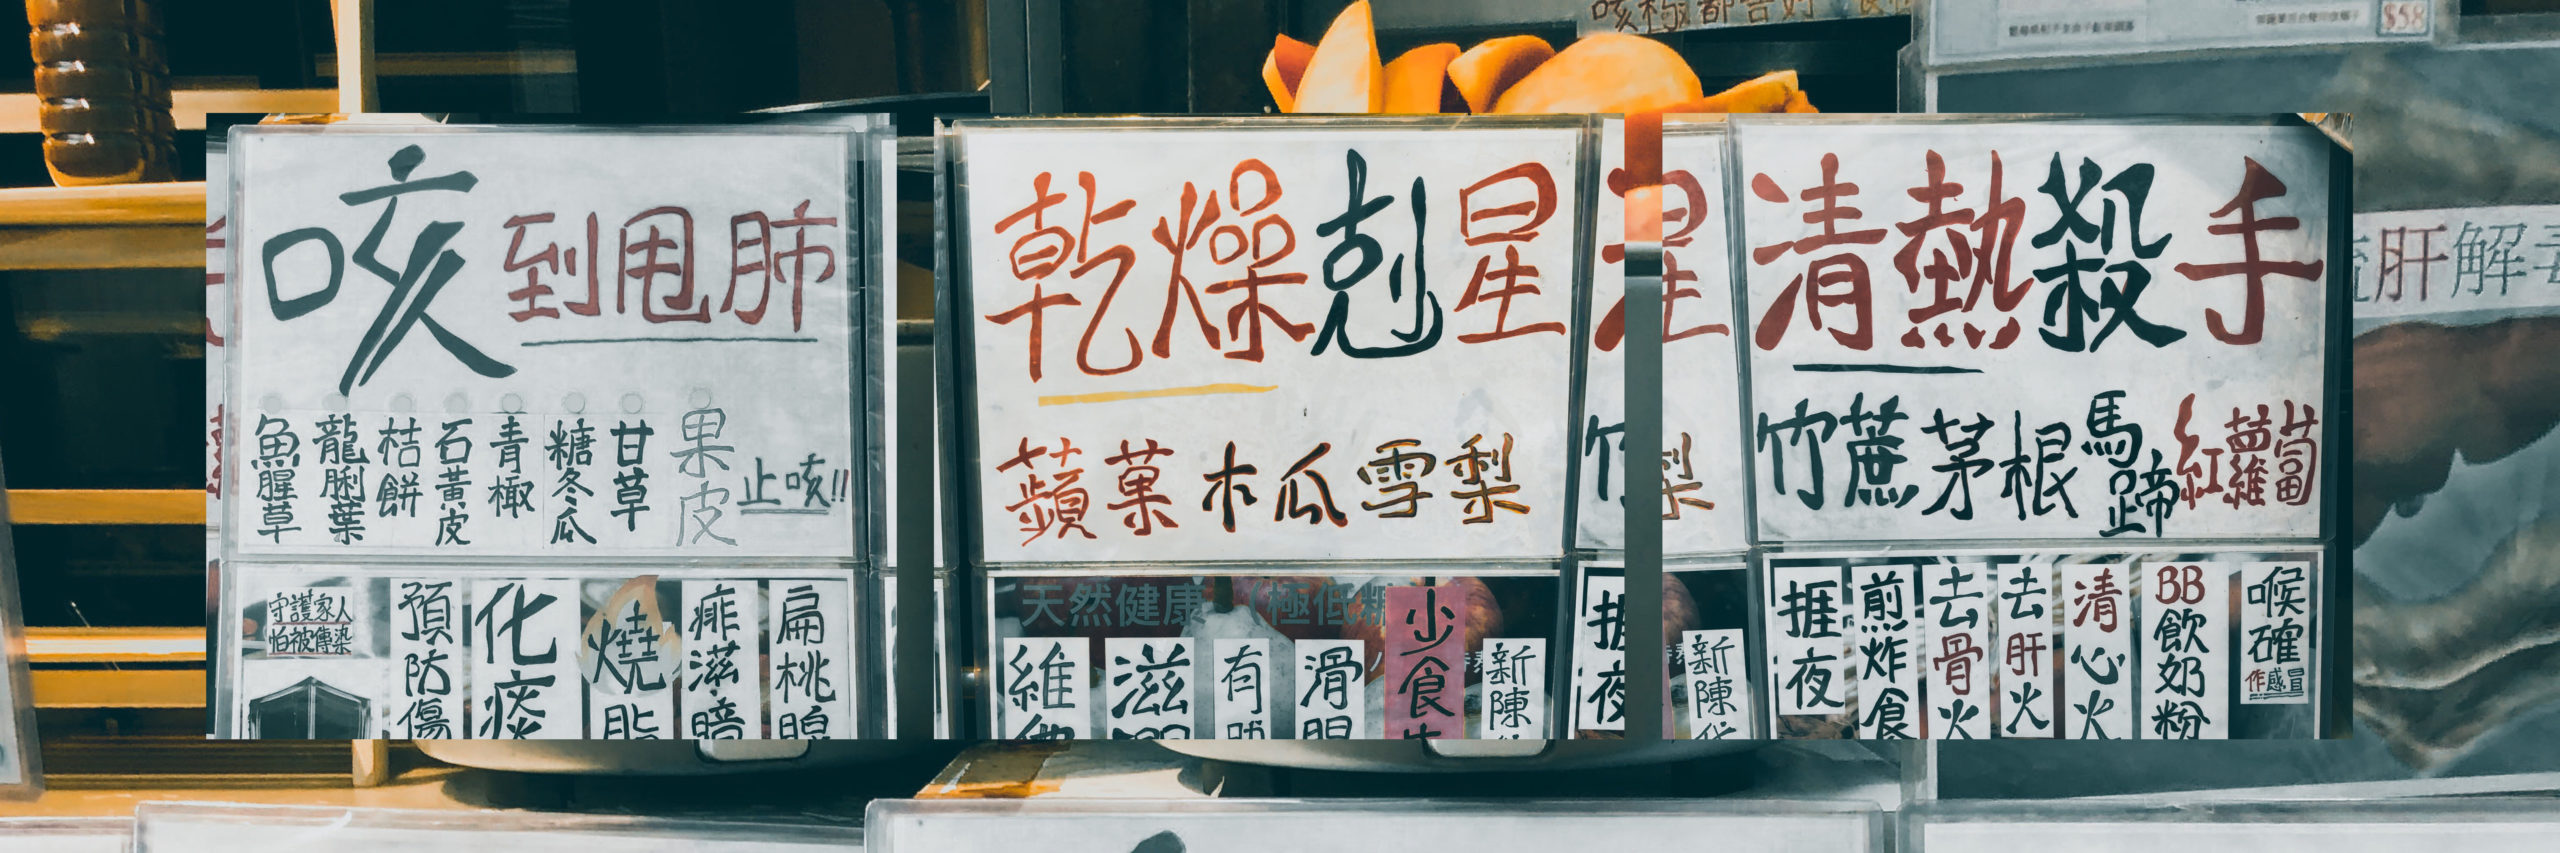 咳極都
$58
咳到甩肺
魚腥草
龍脷葉
桔餅
石黃皮
青橄
糖冬瓜
甘草
果皮
止咳!!
守護家人
怕被傳染
預防傷
化痰
燒脂
痱滋暗
扁桃腺
乾燥剋星
蘋菓木瓜雪梨
天然健康（極低糖
維
滋
有
滑
少食
新陳
星
竹
捱夜
梨
新陳
清熱殺手
竹蔗茅根馬蹄紅蘿蔔
捱夜
煎炸食
去骨火
去肝火
清心火
BB飲奶粉
喉確
作感冒
肝解